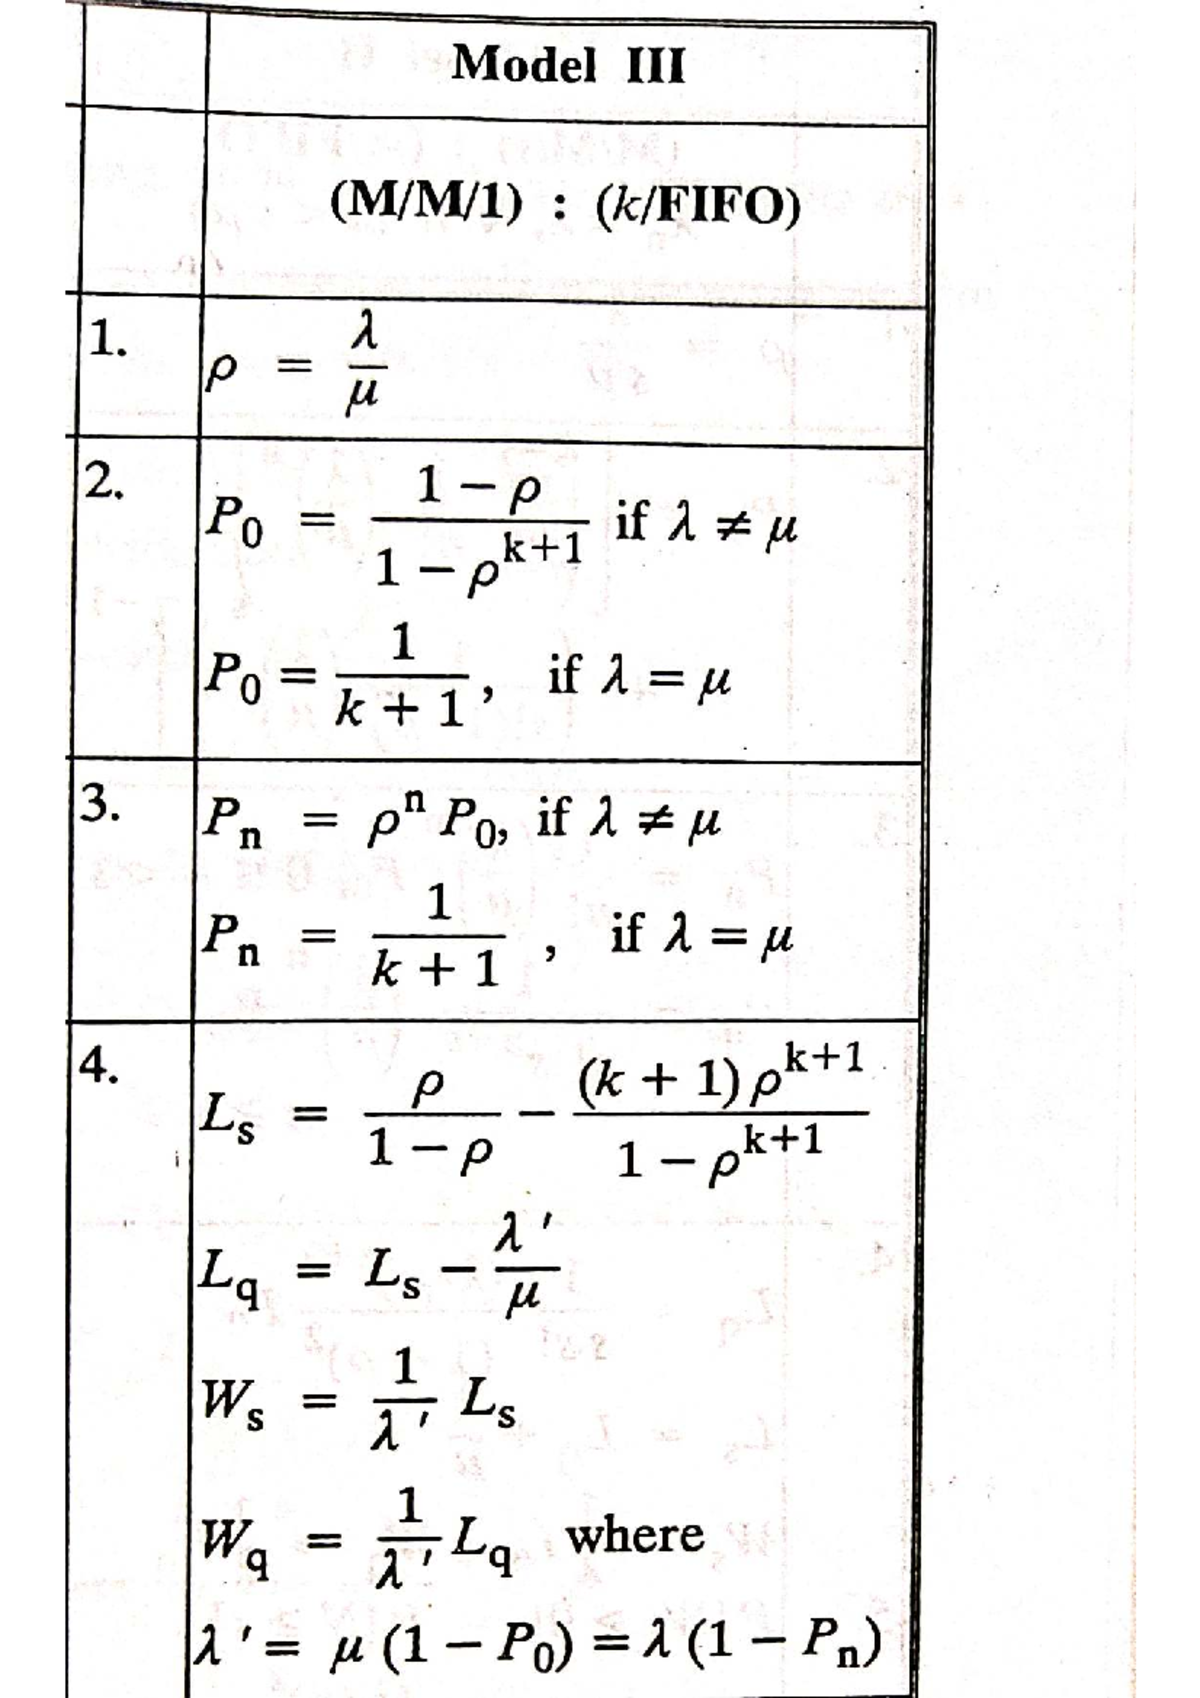 Model III
(M/M/1) : (k/FIFO)
1. ρ = λ/μ
2. P₀ = (1 − ρ)/(1 − ρ^(k+1)) if λ ≠ μ
P₀ = 1/(k + 1), if λ = μ
3. Pₙ = ρⁿ P₀, if λ ≠ μ
Pₙ = 1/(k + 1), if λ = μ
4. Lₛ = ρ/(1 − ρ) − (k + 1) ρ^(k+1)/(1 − ρ^(k+1))
L_q = Lₛ − λ′/μ
Wₛ = 1/λ′ Lₛ
W_q = 1/λ′ L_q where
λ′ = μ (1 − P₀) = λ (1 − Pₙ)